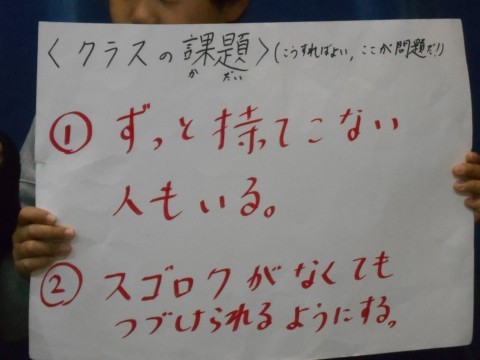 〈クラスの課題〉(こうすればよい、ここが問題だ!)
かだい
①ずっと持ってこない
人もいる。
②スゴロクがなくても
つづけられるようにする。